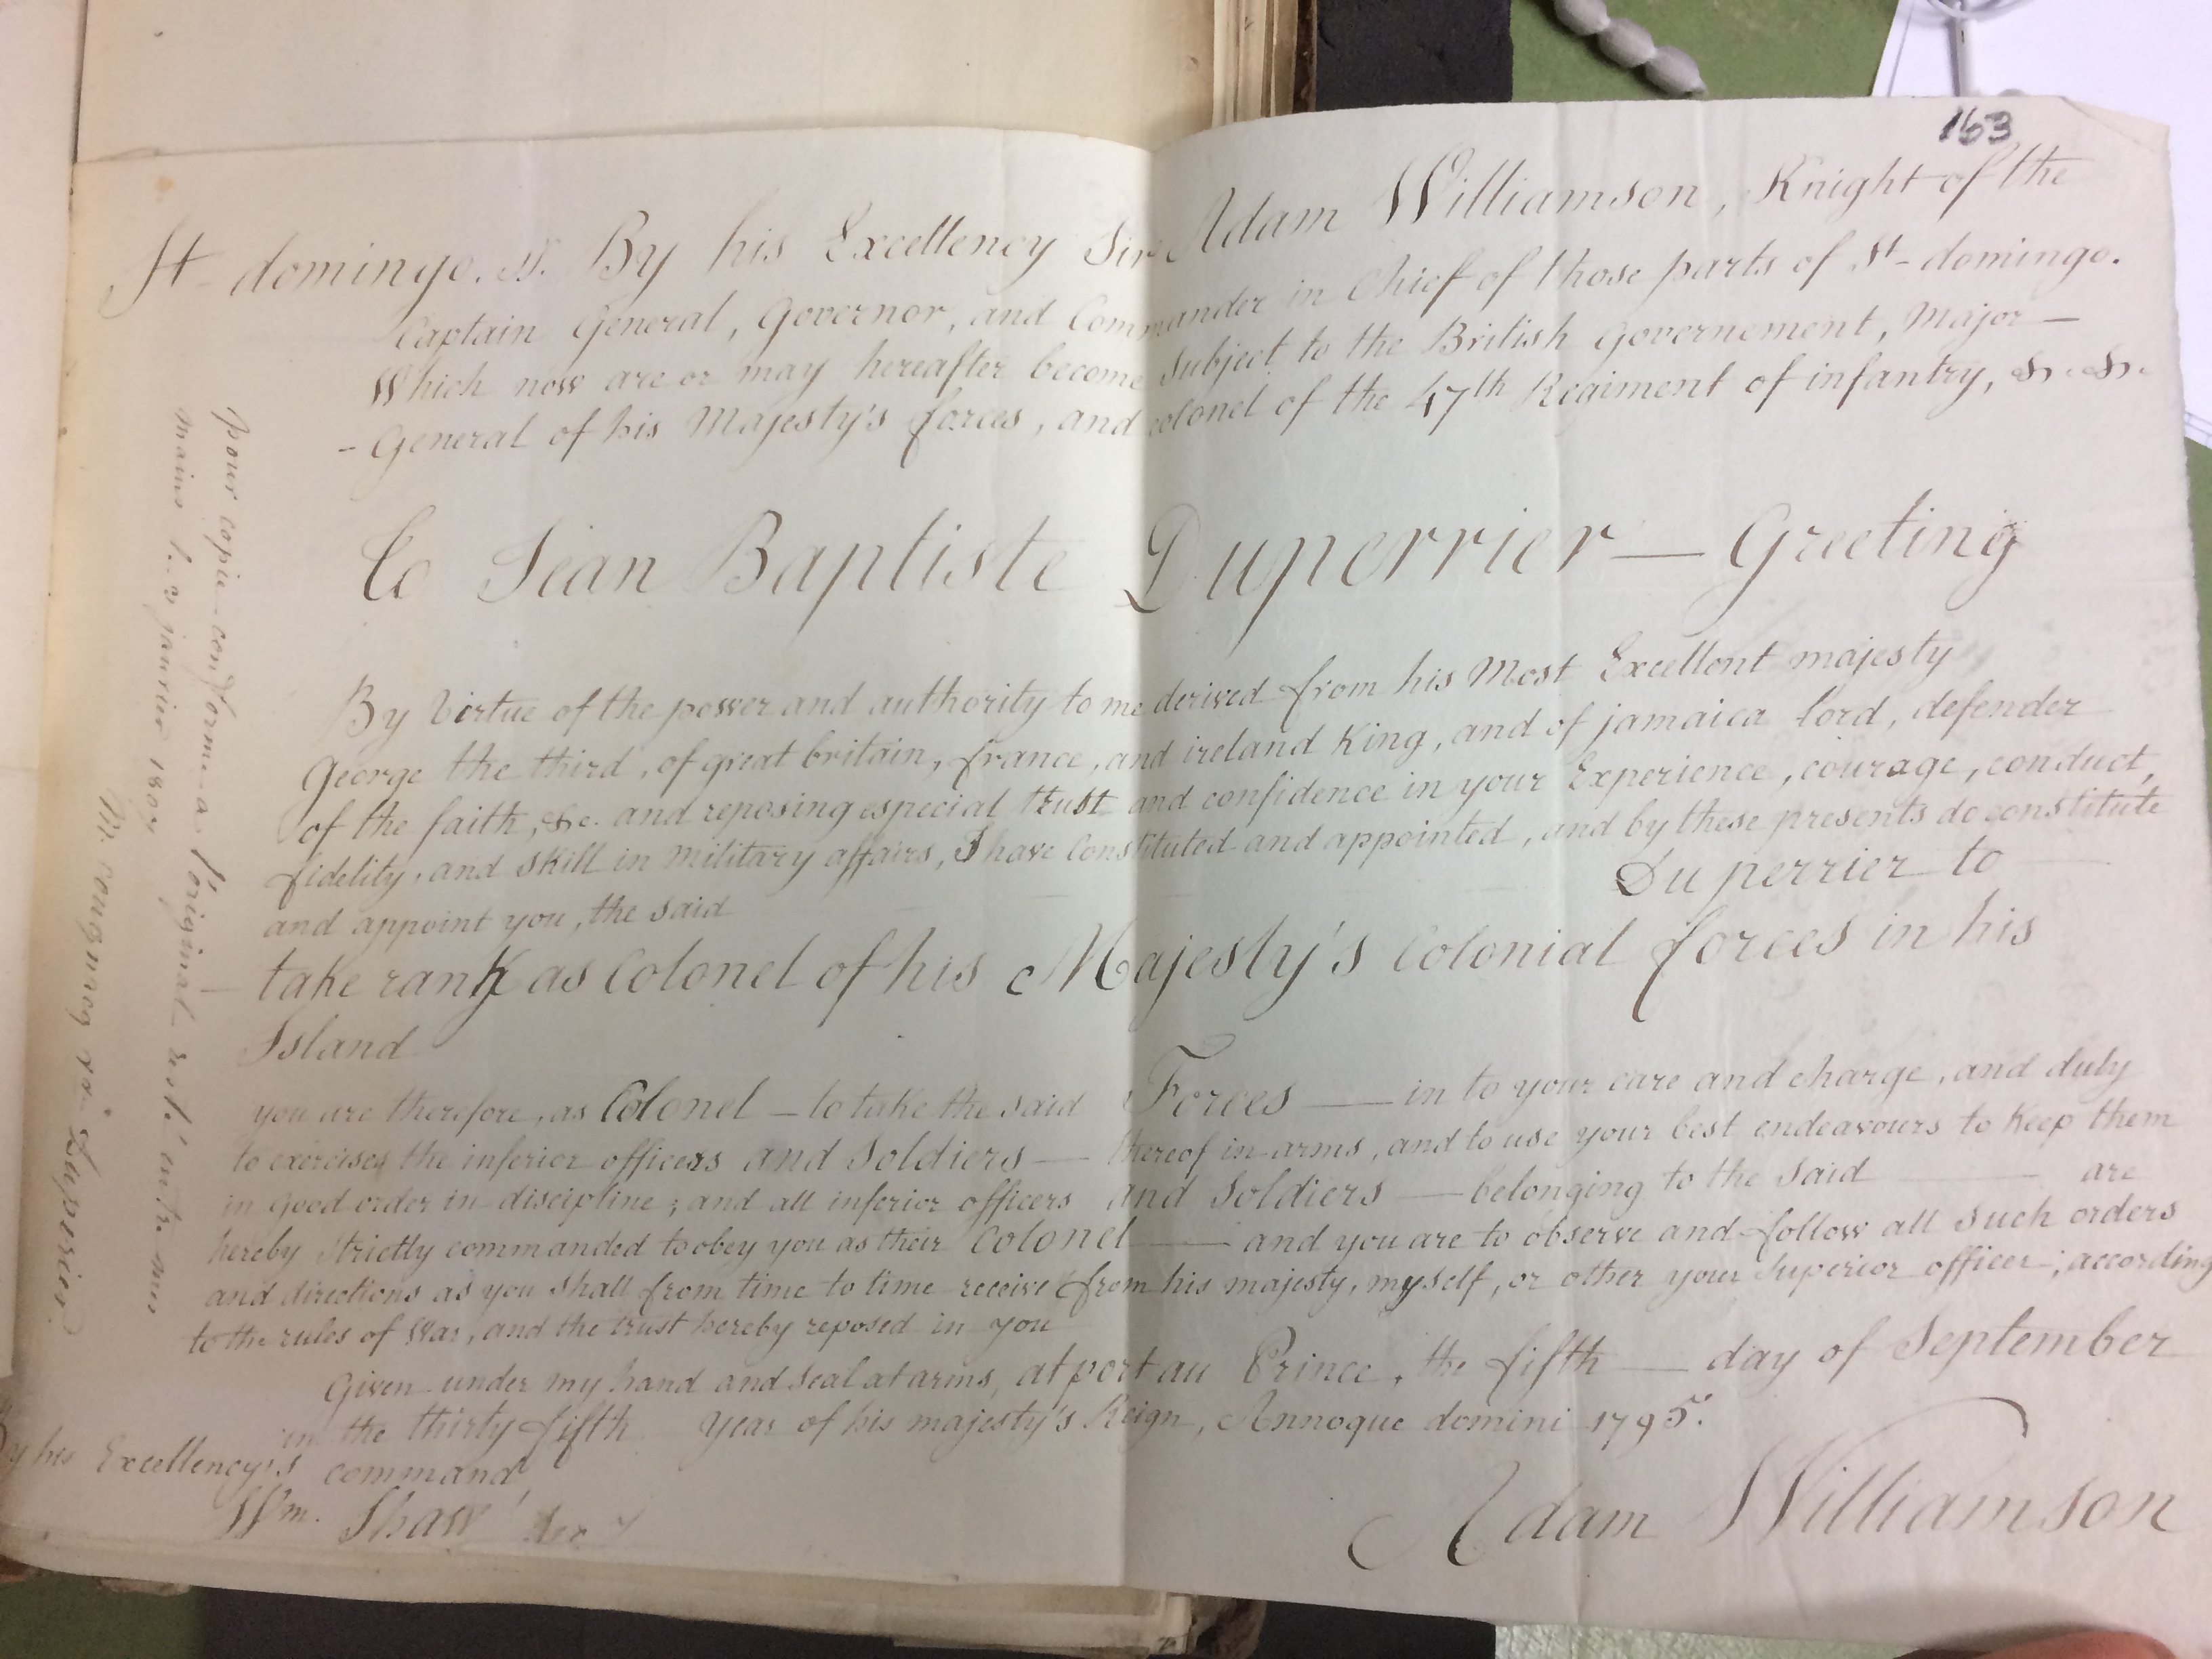 163
St- domingo. ss. By his Excellency Sir Adam Williamson, Knight of the
Captain General, Governor, and Commander in Chief of those parts of St- domingo.
Which now are or may hereafter become Subject to the British Governement, Major —
- General of his Majesty's forces, and colonel of the 47th Regiment of infantry, &c. &c.
To Jean Baptiste Duperrier — Greeting
By Virtue of the power and authority to me derived from his Most Excellent majesty
George the third, of great britain, france, and ireland King, and of jamaica Lord, defender
of the faith, &c. and reposing especial trust and confidence in your Experience, courage, conduct,
fidelity, and skill in military affairs, I have Constituted and appointed, and by these presents do constitute
and appoint you, the said Duperrier to —
take rank as Colonel of his Majesty's Colonial forces in his
Island
you are therefore, as Colonel — to take the said Forces — in to your care and charge, and duly
to exercises the inferior officers and Soldiers — thereof in arms, and to use your best endeavours to Keep them
in good order in discipline; and all inferior officers and Soldiers — belonging to the Said — are
hereby Strictly commanded to obey you as their Colonel — and you are to observe and follow all Such orders
and directions as you Shall from time to time receive from his majesty, myself, or other your Superior officer; according
to the rules of War, and the trust hereby reposed in you
Given under my hand and seal at arms, at port au Prince, the fifth — day of September
in the thirty fifth year of his majesty's Reign, Annoque domini 1795.
By his Excellency's command,
Wm. Shaw Secy
Adam Williamson
pour copie conforme a l'original resté entre mes
mains le 2 janvier 1809
Duperier